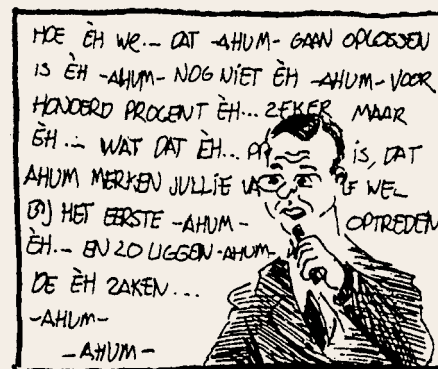 HOE ÈH WE... DAT -AHUM- GAAN OPLOSSEN
IS ÈH -AHUM- NOG NIET ÈH -AHUM- VOOR
HONDERD PROCENT ÈH... ZEKER MAAR
ÈH... WAT DAT ÈH... IS, DAT
AHUM MERKEN JULLIE WEL
HET EERSTE -AHUM- OPTREDEN
ÈH... EN ZO LIGGEN -AHUM-
DE ÈH ZAKEN...
-AHUM-
-AHUM-